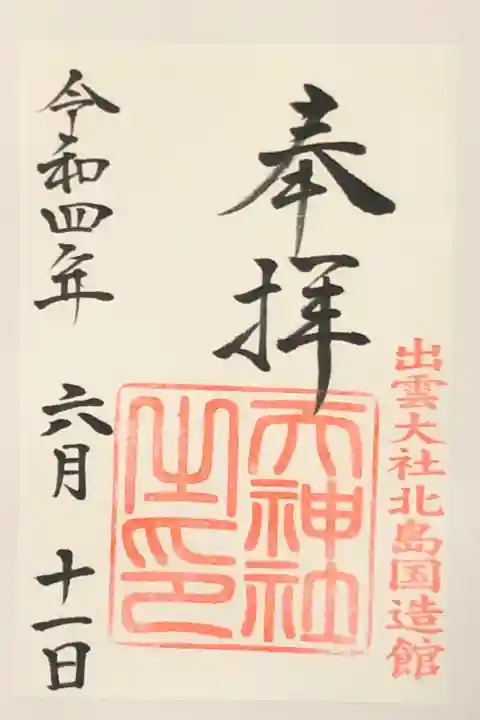 出雲大社北島国造館
奉拝
天神社
之印
令和四年 六月 十一日